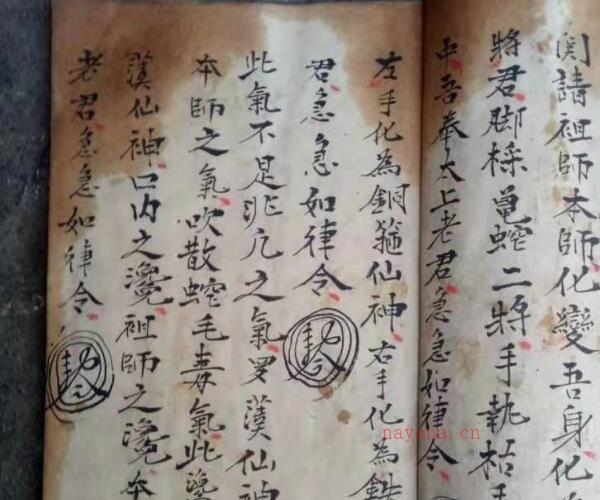 請祖師本師化變吾身化
將君脚採黽蛇二將手執枯
中吾奉太上老君急急如律令
左手化為銅箍仙神右手化為鉄
君急急如律令
勅令
此氣不是非凢之氣罗漢仙神
本師之氣吹散蛇毛毒氣此瀺
漢仙神口内之瀺祖師之瀺本
老君急急如律令
勅令
nayona.cn